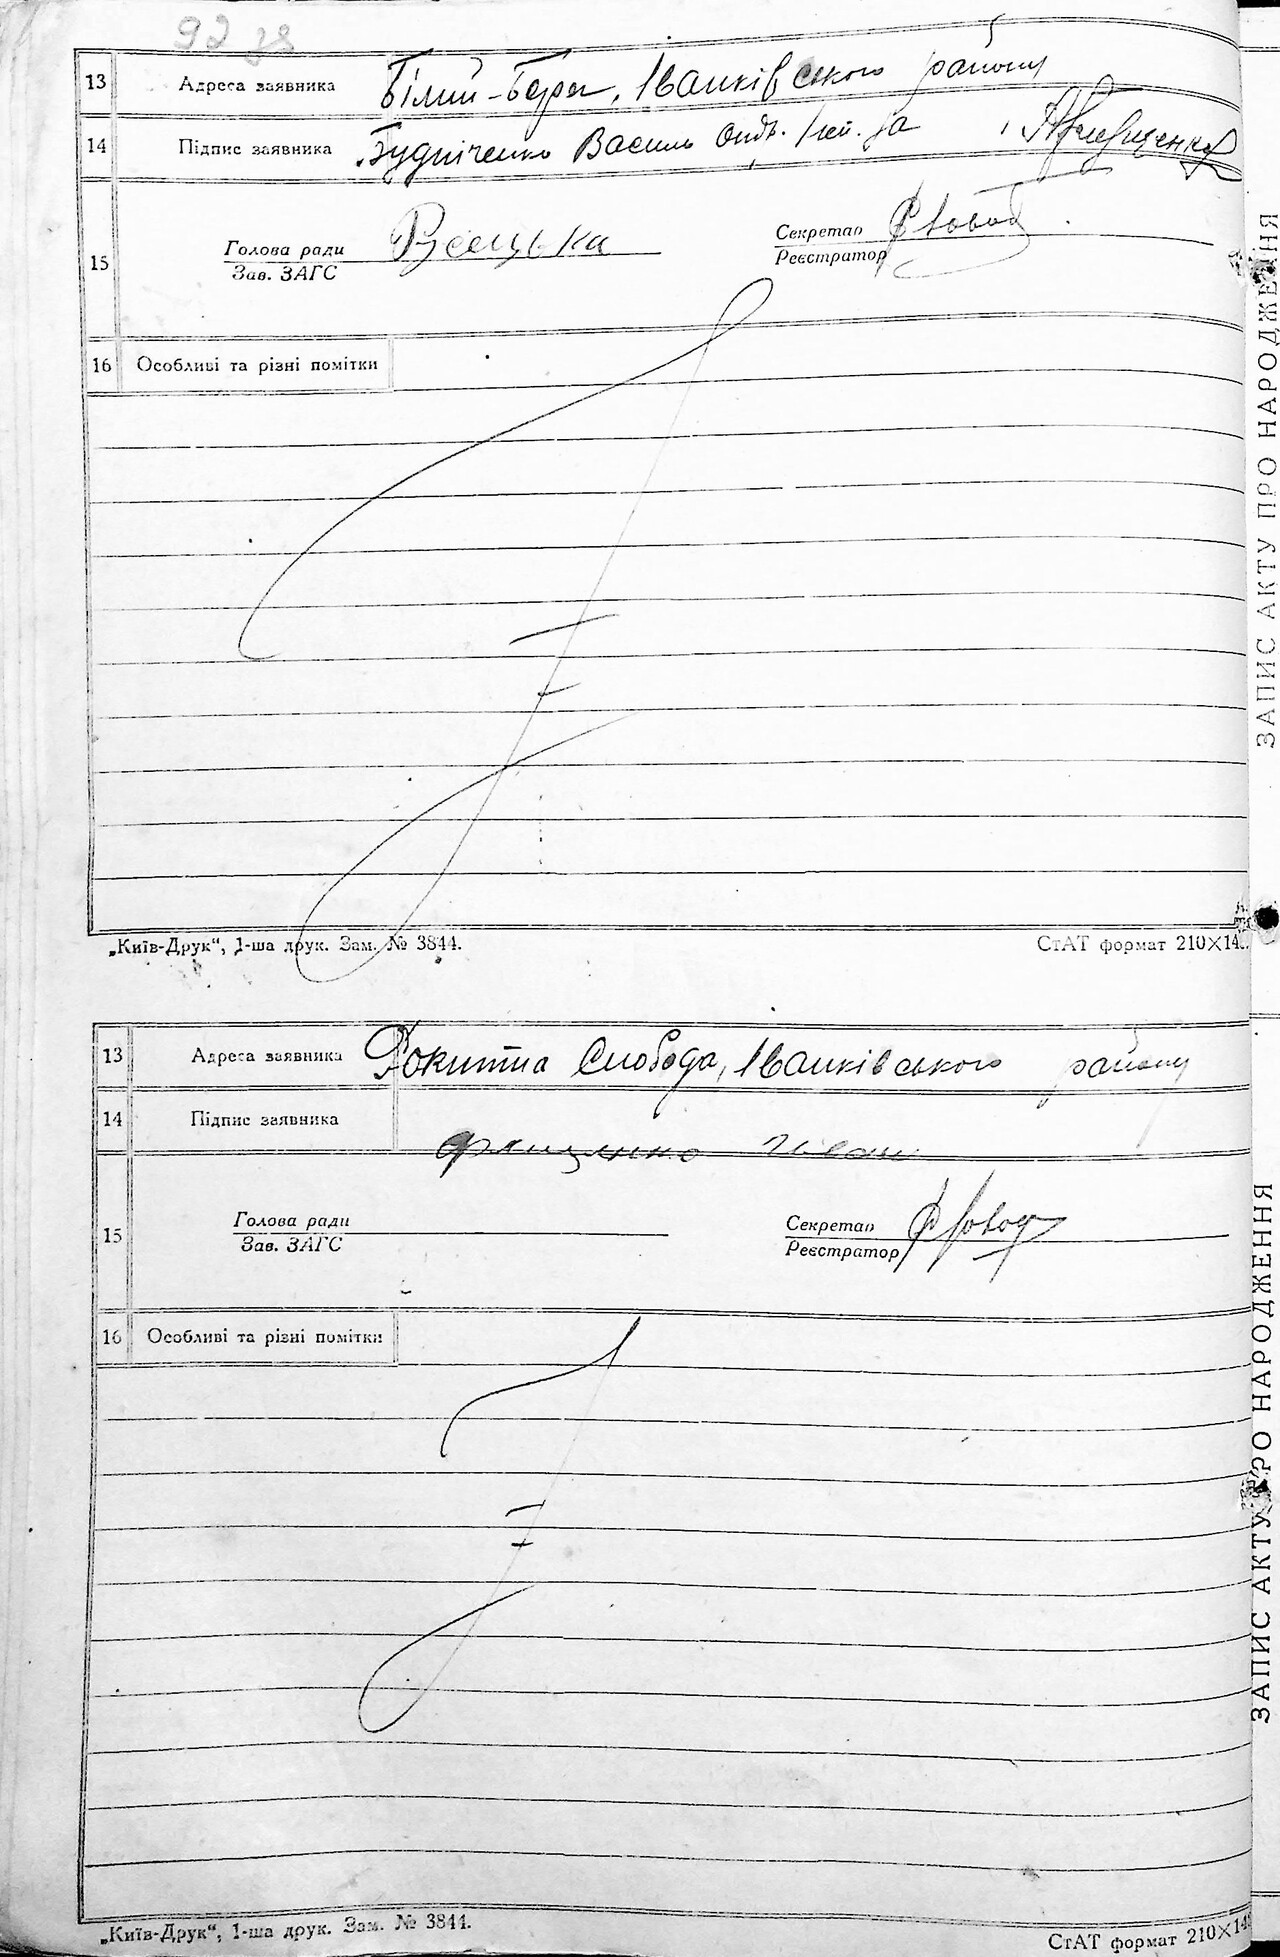 92
13 Адреса заявника Білий-Берег, Іванківського району
14 Підпис заявника Будніченко Василь
15 Голова ради Секретар
Зав. ЗАГС Реєстратор
16 Особливі та різні помітки
„Київ-Друк“, 1-ша друк. Зам. № 3844. СтАТ формат 210×14
13 Адреса заявника Рокитна Слобода, Іванківського району
14 Підпис заявника
15 Голова ради Секретар
Зав. ЗАГС Реєстратор
16 Особливі та різні помітки
„Київ-Друк“, 1-ша друк. Зам. № 3844. СтАТ формат 210×14
ЗАПИС АКТУ ПРО НАРОДЖЕННЯ
ЗАПИС АКТУ ПРО НАРОДЖЕННЯ